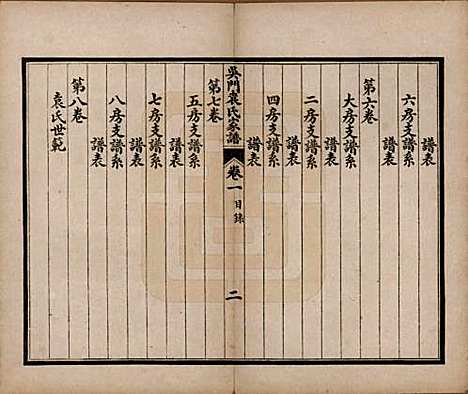 六房支譜系
譜表
第六卷
大房支譜系
譜表
二房支譜系
譜表
四房支譜系
譜表
吳門袁氏家譜 卷一 目錄 二
第七卷
五房支譜系
譜表
七房支譜系
譜表
八房支譜系
譜表
第八卷
袁氏世範